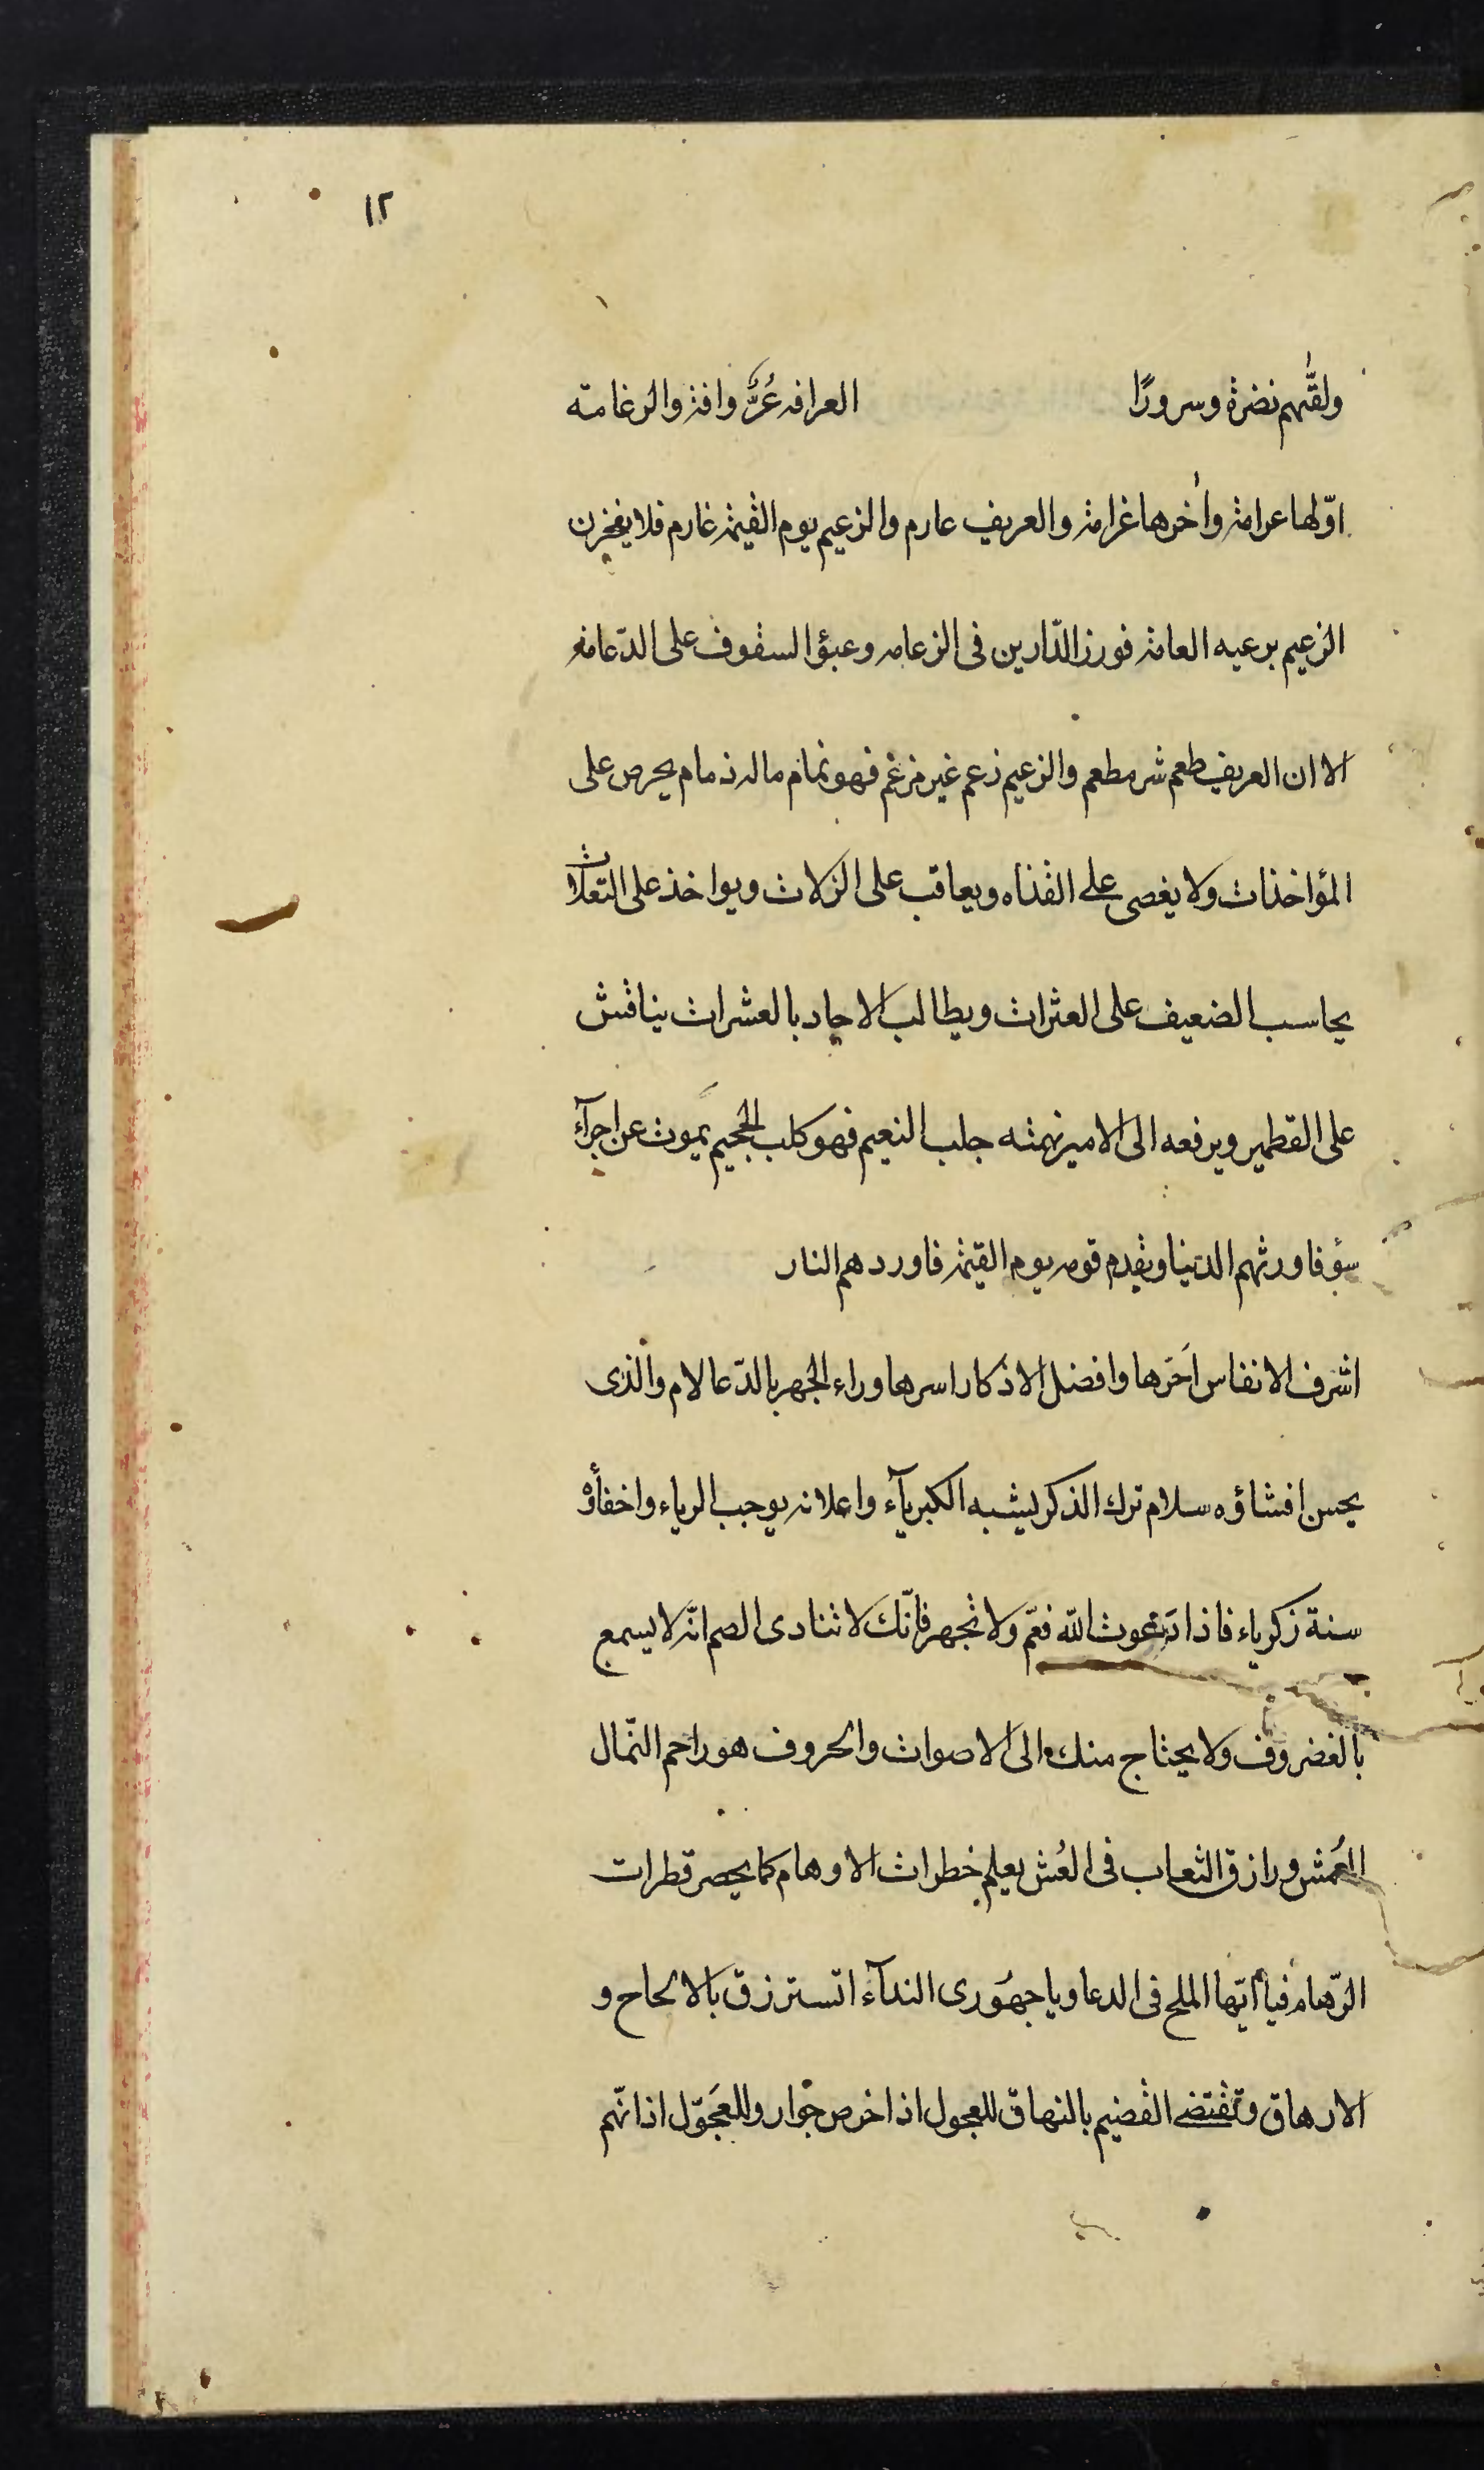 ١٢
ولقّٰهم نضرة وسرورًا العرافه عُرٌّ وافة والرغامته
اوّلها عرامة واٰخرها غرامة والعريف عارم والزعيم يوم القيمة غارم فلا يفخرن
الزعيم برعيه العامة فورز الدّارين فى الزعامه وعبؤ السقوف على الدّعامه
الا ان العريف طعم شر مطعم والزعيم زعم غير مزعم فهو نمام ماله ذمام يحرص على
المؤاخذات ولا يغضى على القذاه ويعاقب على الزلات ويواخذ على التعلات
يحاسب الضعيف على العثرات ويطالب الاحاد بالعشرات يناقش
على القطمير ويرفعه الى الامير نهمته جلب النعيم فهو كلب الجحيم يموت عن اجرآء
سؤ فاورثهم الدنيا ويقدم قومه يوم القيمة فاوردهم النار
اشرف الانفاس اَحَرّها وافضل الاذكار اسرها وراء الجهر بالدّعا لام والذى
يحسن افشاؤه سلام ترك الذكر يشبه الكبريآء واعلانه يوجب الرياء واخفاؤه
سنة زكرياء فاذا دَعوت اللّه فغمّ ولا تجهر فانّك لا تنادى الصم انّه لا يسمع
بالغضروف ولا يحتاج منك الى الاصوات والحروف هو راحم النّمال
العُمش ورازق الثعاب فى العُش يعلم خطرات الاوهام كما يحصر قطرات
الرّهام فيا ايّها الملح فى الدعا ويا جهْوَرى الندآء اتسترزق بالالحاح و
الارهاق وتقتضى القضيم بالنهاق للعجول اذا خرص جوار وللعَجَوّل اذا نهم